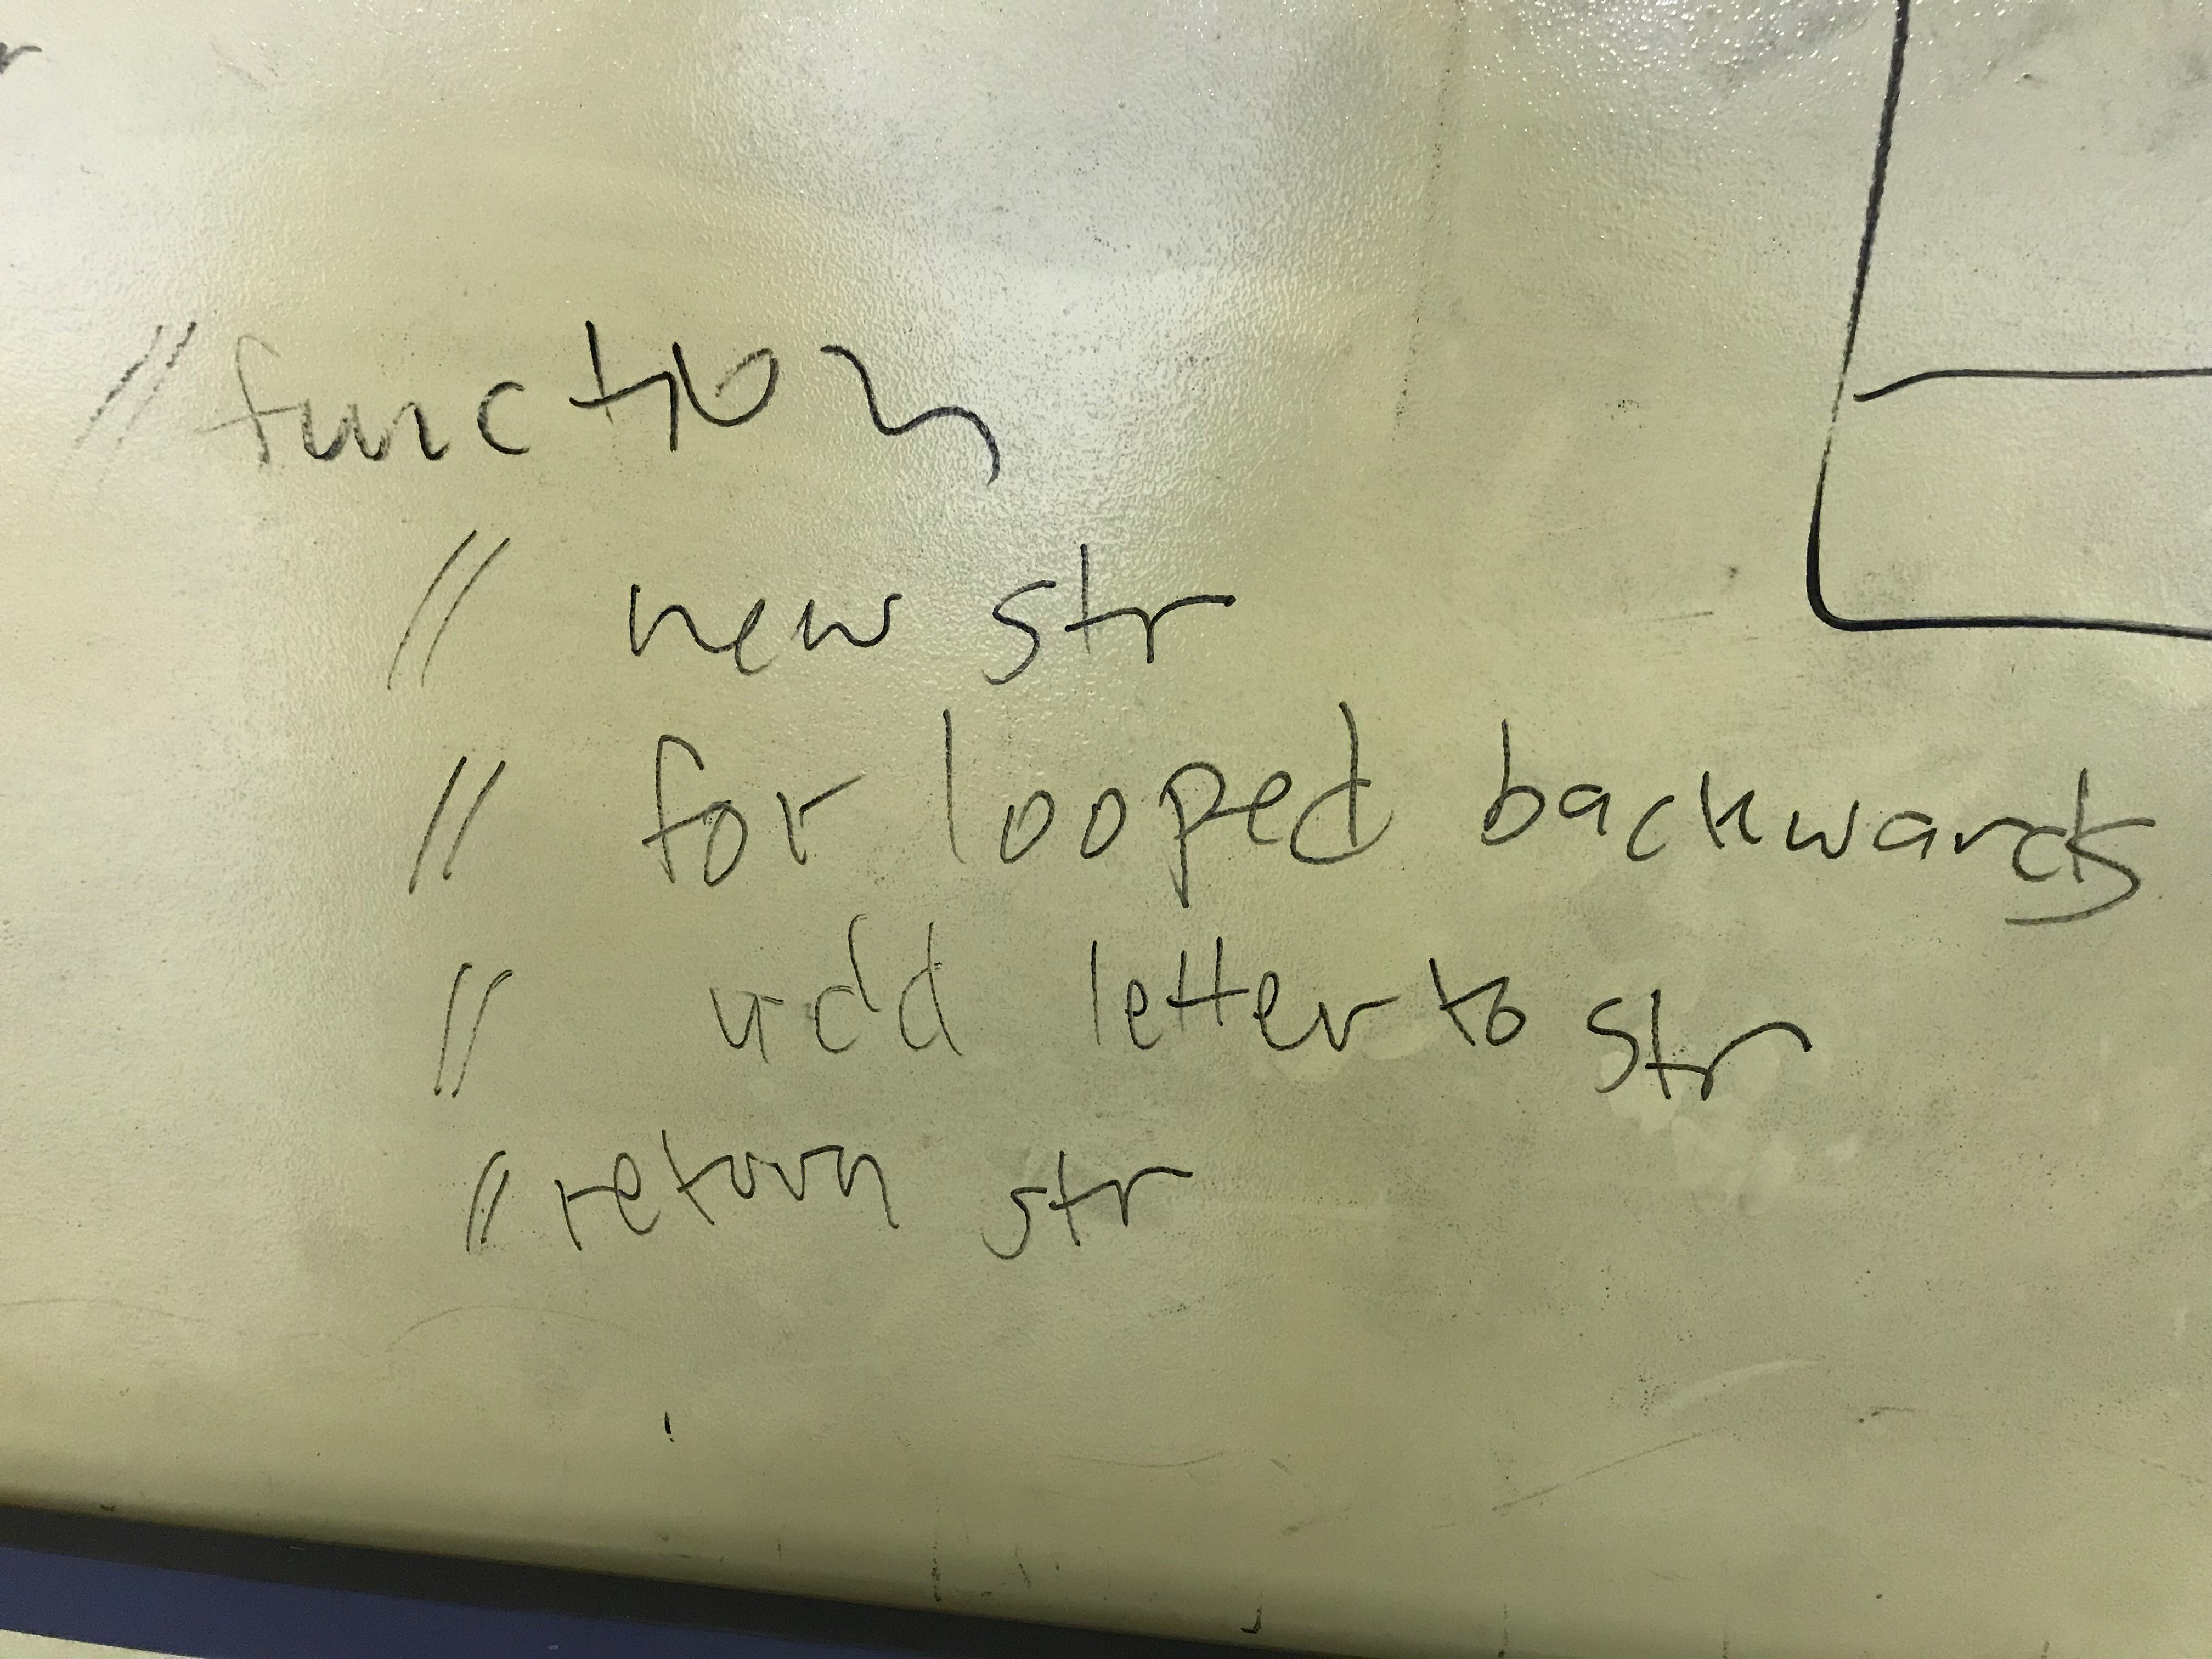 // function
// new str
// for looped backwards
// add letter to str
// return str